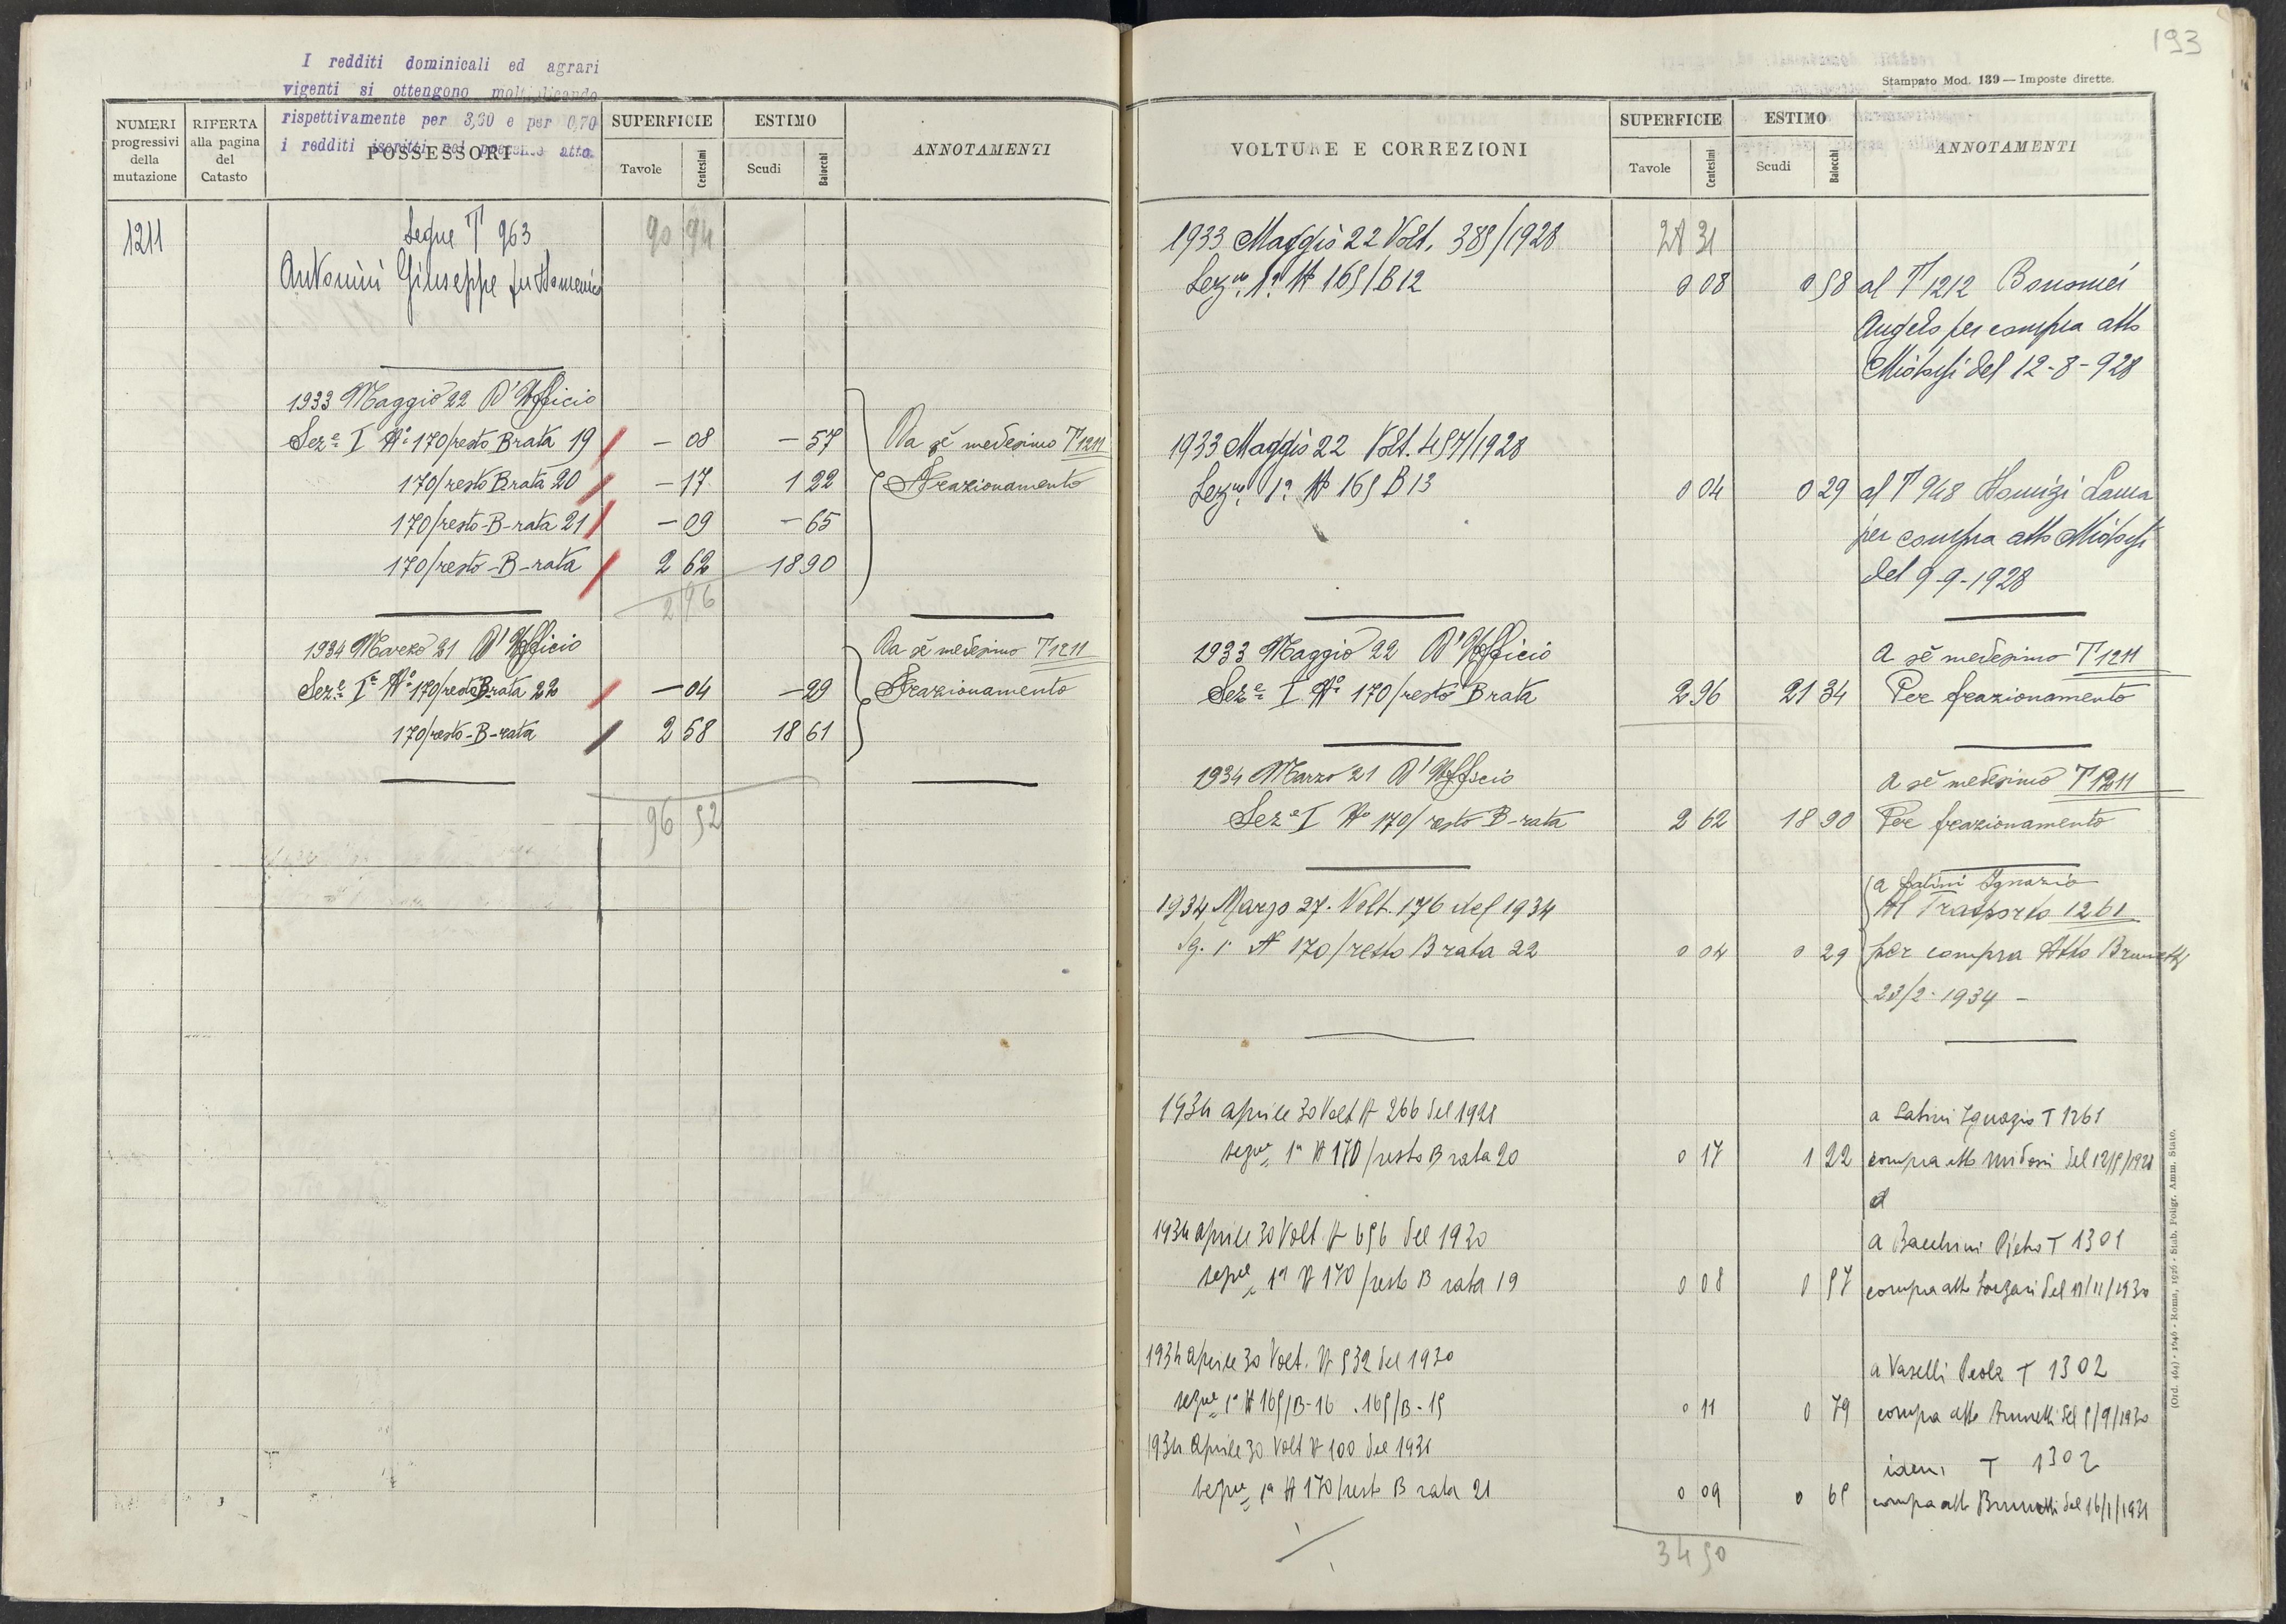 I redditi dominicali ed agrari
vigenti si ottengono moltiplicando
rispettivamente per 3,60 e per 0,70
i redditi iscritti nel presente atto.
NUMERI progressivi della mutazione
RIFERTA alla pagina del Catasto
POSSESSORI
SUPERFICIE
Tavole Centesimi
ESTIMO
Scudi Baiocchi
ANNOTAMENTI
1211 Segue T 963 90 94
Antonini Giuseppe fu Domenico
1933 Maggio 22 D'Ufficio
Sez.e I N.o 170/resto B rata 19 — 08 — 57 Da sè medesimo T 1211
170/resto B rata 20 — 17 1 22 Frazionamento
170/resto-B-rata 21 — 09 — 65
170/resto-B-rata 2 62 18 90
2 96
1934 Marzo 21 D'Ufficio Da sè medesimo T 1211
Sez.e I.a N.o 170/resto B rata 22 — 04 — 29 Frazionamento
170/resto-B-rata 2 58 18 61
96 52
193
Stampato Mod. 139 — Imposte dirette.
VOLTURE E CORREZIONI
SUPERFICIE
Tavole Centesimi
ESTIMO
Scudi Baiocchi
ANNOTAMENTI
1933 Maggio 22 Volt. 389/1928 28 31
Sez.ne 1a N 165/B12 0 08 0 58 al T 1212 Bonomei
Angelo per compra atto
del 12-8-928
1933 Maggio 22 Volt. 457/1928
Sez.ne 1a N 165 B 13 0 04 0 29 al T 948
per compra atto
del 9-9-1928
1933 Maggio 22 D'Ufficio A sè medesimo T 1211
Sez.e I N.o 170/resto B rata 2 96 21 34 Per frazionamento
1934 Marzo 21 D'Ufficio A sè medesimo T 1211
Sez.e I N.o 170/resto B-rata 2 62 18 90 Per frazionamento
a Latini Ignazio
1934 Marzo 27. Volt. 176 del 1934 Al Trasporto 1261
Sz. 1a N 170/resto B rata 22 0 04 0 29 per compra Atto Brunetti
23/2-1934 —
1934 aprile 30 Volt N 266 del 1928 a Latini Ignazio T 1261
sezne 1a N 170/resto B rata 20 0 17 1 22 compra atto del 12/5/1928
1934 aprile 30 Volt. N 656 del 1930 a Bacchini Pietro T 1301
sezne 1a N 170/resto B rata 19 0 08 0 57 compra atto del 11/11/1930
1934 aprile 30 Volt. N 532 del 1930 a Vaselli T 1302
sezne 1a N 165/B-16 . 165/B-15 0 11 0 79 compra atto Brunetti del 5/9/1930
1934 aprile 30 Volt N 100 del 1931 idem T 1302
sezne 1a N 170/resto B rata 21 0 09 0 65 compra atto Brunetti del 16/1/1931
34 50
(Ord. 464) - 1646 - Roma, 1926 - Stab. Poligr. Amm. Stato.